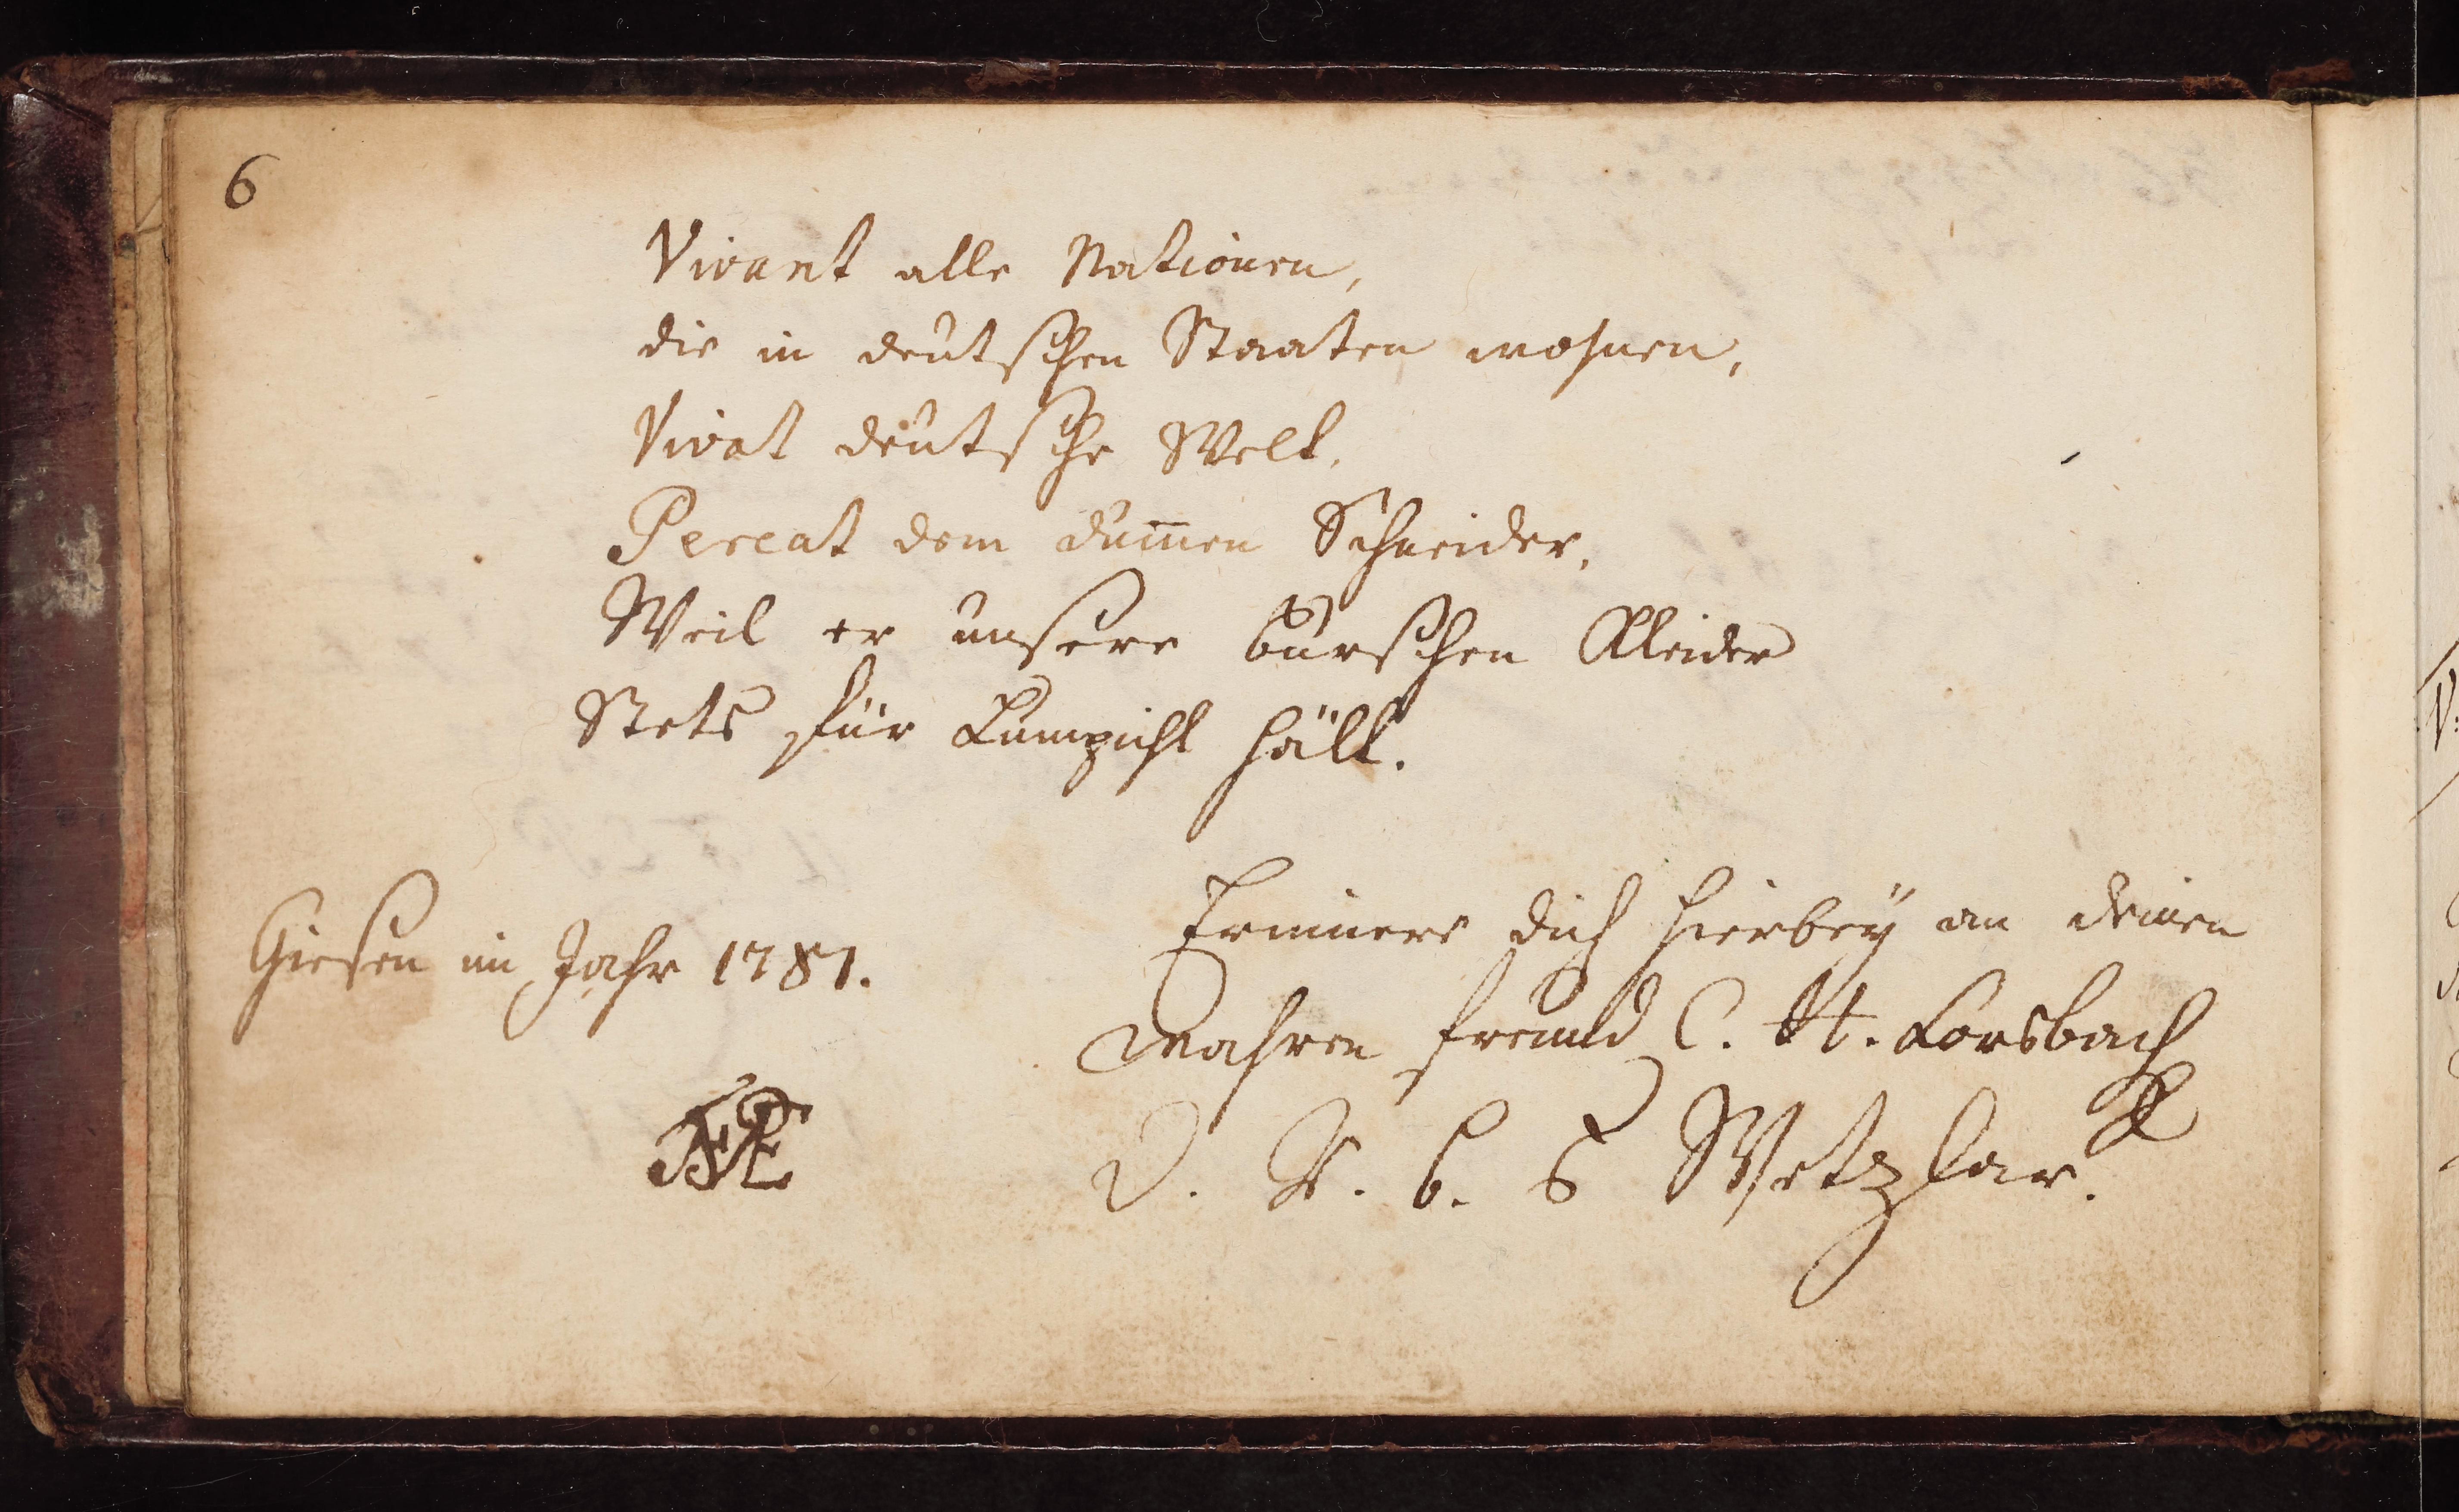 6
Vivant alle Nationen,
die in deutschen Staaten wohnen,
Vivat deutsche Welt,
Pereat dem dum̅en Schneider,
Weil er unsere burschen Kleider
Stets für Lumpicht hält.
Giesen im Jahr 1781.
Erinnere dich hierbey an deinen
Wahren freund C. H. Forsbach
D. R. b. S Wetzlar.